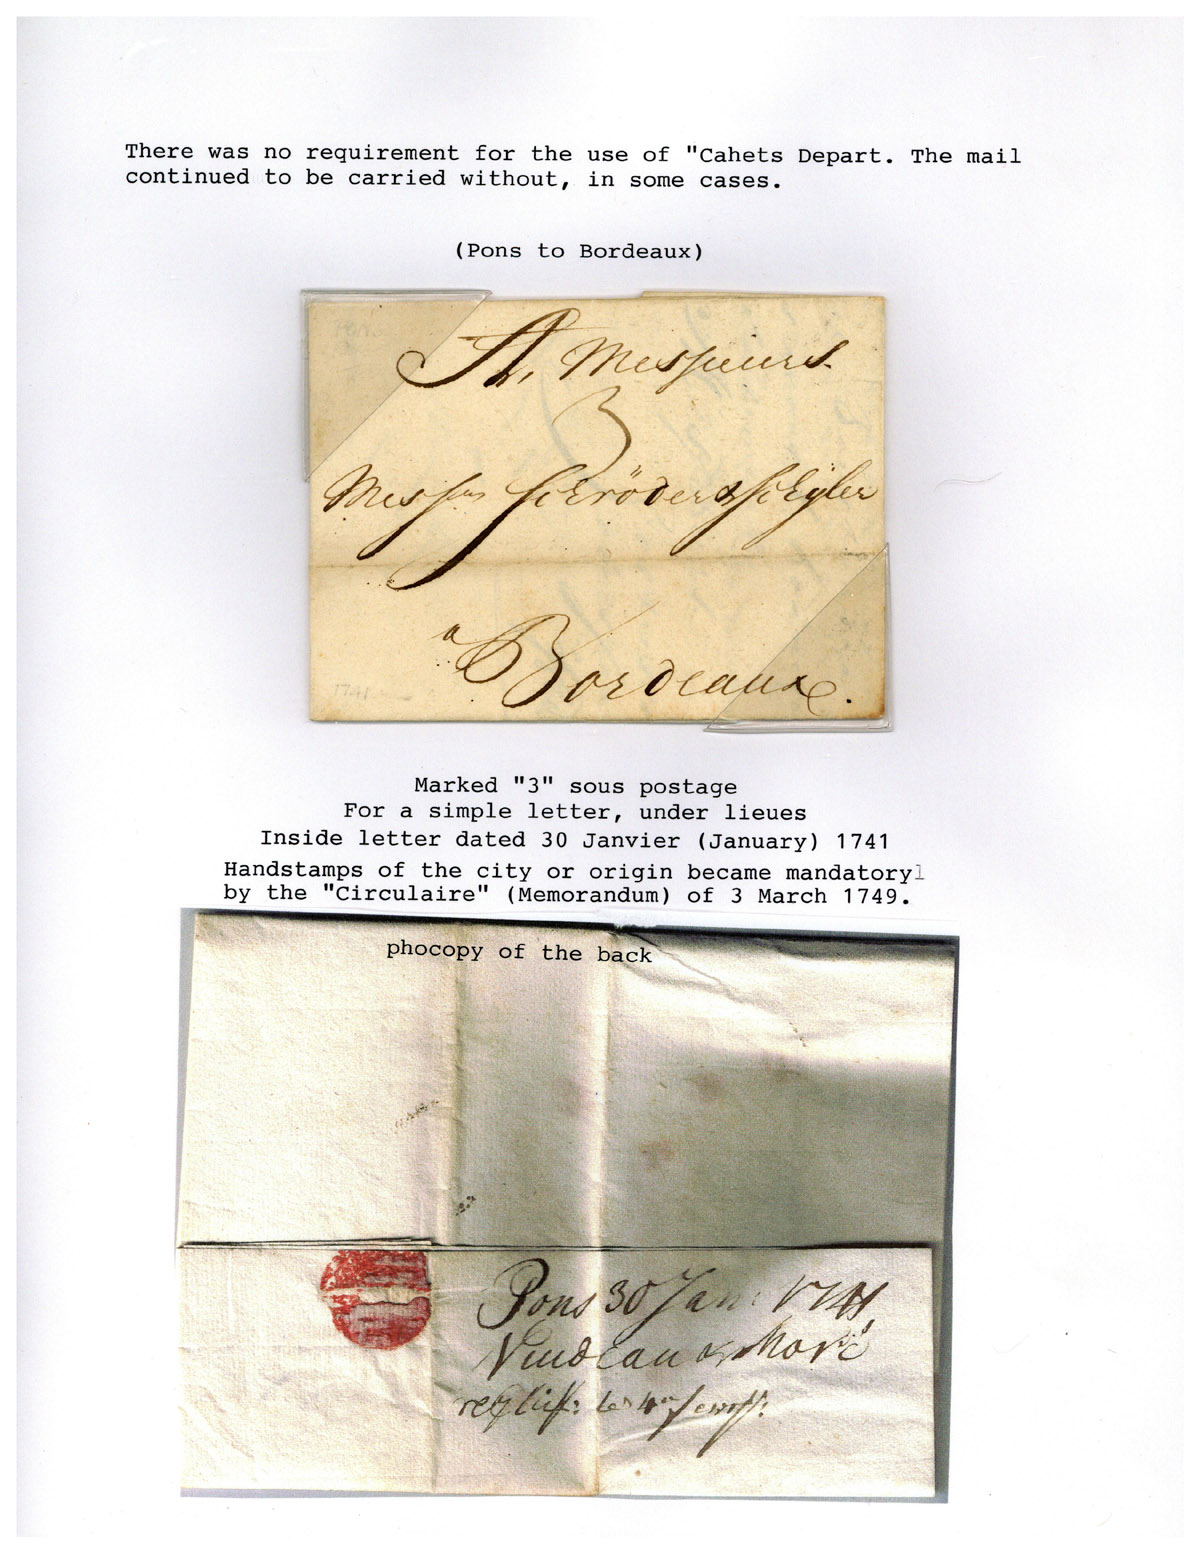 There was no requirement for the use of "Cahets Depart. The mail
continued to be carried without, in some cases.
(Pons to Bordeaux)
A, Messieurs
3
Messrs Schröder & Schÿler
a Bordeaux.
1741
Marked "3" sous postage
For a simple letter, under lieues
Inside letter dated 30 Janvier (January) 1741
Handstamps of the city or origin became mandatoryl
by the "Circulaire" (Memorandum) of 3 March 1749.
phocopy of the back
Pons 30 Jan: 1741